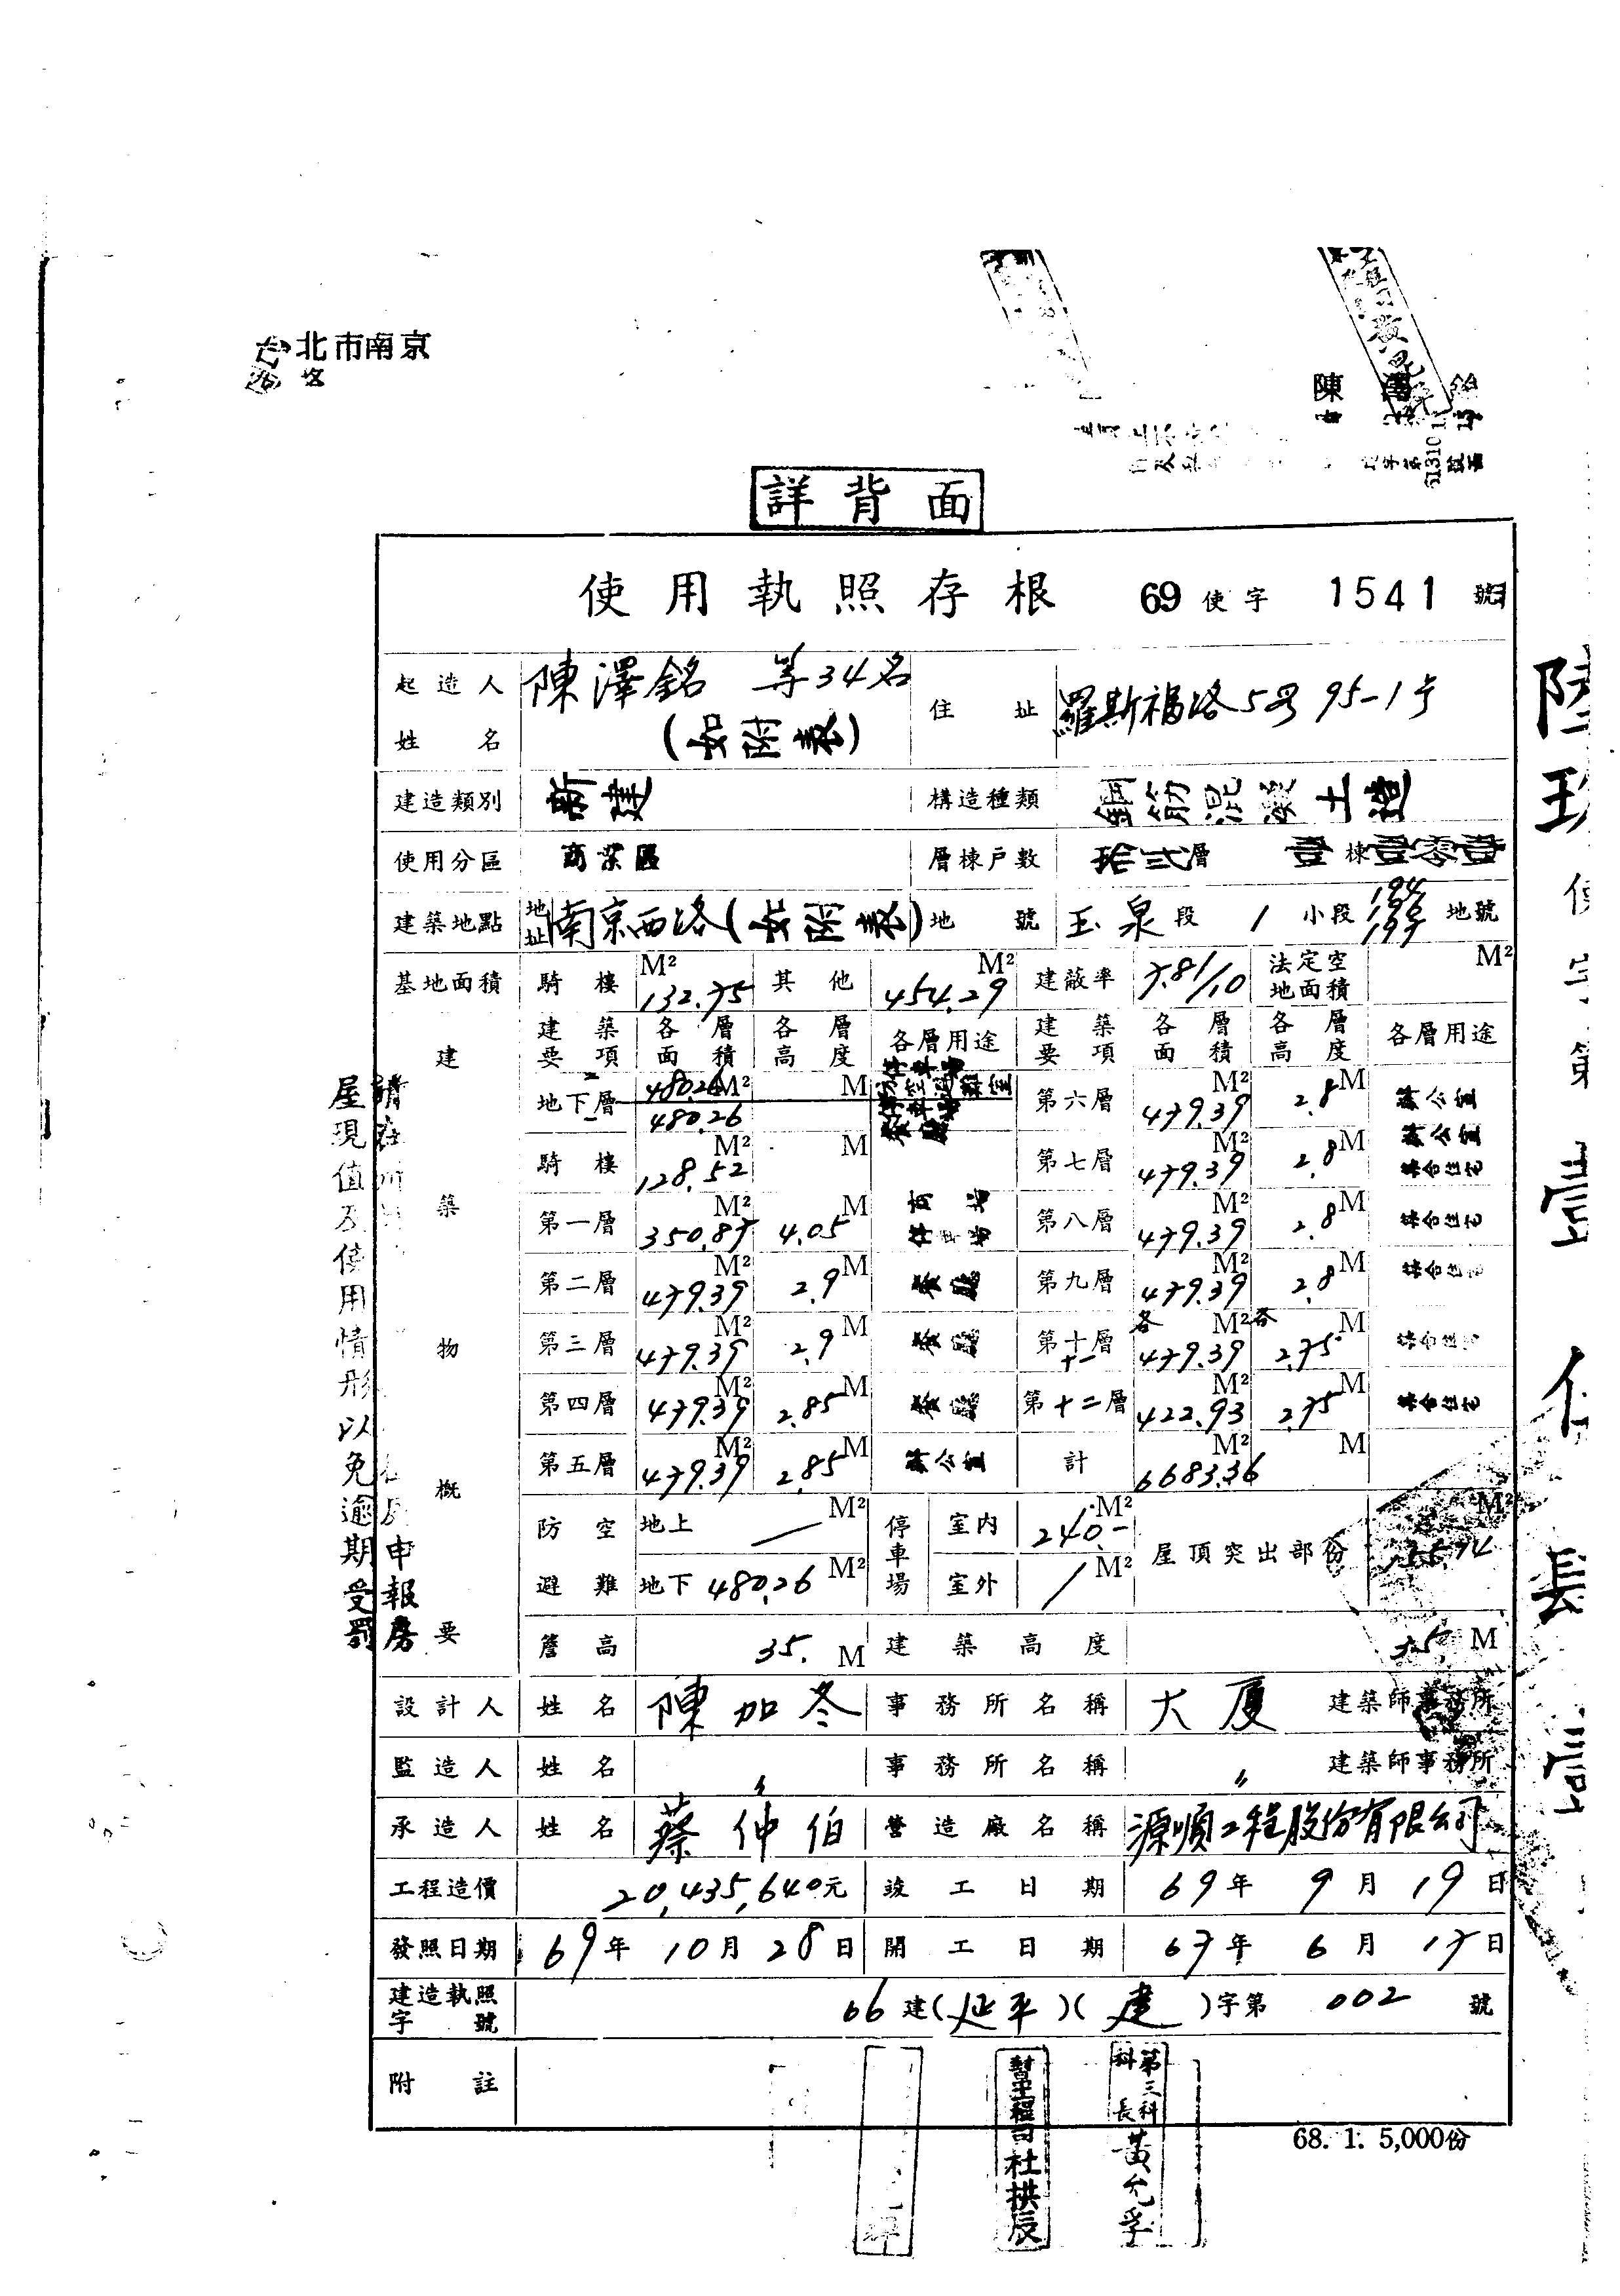 北市南京
陳
詳背面
使用執照存根 69使字 1541 號
起造人姓名 陳澤銘 等34名 (如附表) 住址 羅斯福路5段95-1号
建造類別 新建 構造種類 鋼筋混凝土造
使用分區 商業區 層棟戶數 拾弍層 壹棟壹零壹
建築地點 地址 南京西路(如附表) 地號 玉泉段 1 小段 194 地號
基地面積 騎樓 132.75 M² 其他 454.29 M² 建蔽率 7.81/10 法定空地面積 M²
建築物概要
建築要項 各層面積 各層高度 各層用途 建築要項 各層面積 各層高度 各層用途
地下層 480.26 M² 480.26 M 第六層 479.39 M² 2.8 M 辦公室
騎樓 128.52 M² M 第七層 479.39 M² 2.8 M 辦公室 綜合住宅
第一層 350.87 M² 4.05 M 商場 停車場 第八層 479.39 M² 2.8 M 綜合住宅
第二層 479.39 M² 2.9 M 餐廳 第九層 479.39 M² 2.8 M 綜合住宅
第三層 479.39 M² 2.9 M 餐廳 第十層 十一 各 479.39 M² 各 2.75 M 綜合住宅
第四層 479.39 M² 2.85 M 餐廳 第十二層 422.93 M² 2.75 M 綜合住宅
第五層 479.39 M² 2.85 M 辦公室 計 6683.36 M² M
防空避難 地上 — M² 停車場 室內 240.- M² 屋頂突出部份 M²
地下 480.26 M² 室外 / M²
簷高 35. M 建築高度 35 M
設計人 姓名 陳加冬 事務所名稱 大厦 建築師事務所
監造人 姓名 〃 事務所名稱 〃 建築師事務所
承造人 姓名 蔡仲伯 營造廠名稱 源順工程股份有限公司
工程造價 20,435,640元 竣工日期 69年9月19日
發照日期 69年10月28日 開工日期 67年6月17日
建造執照字號 66建(延平)(建)字第 002 號
附註
68. 1. 5,000份
申報房
屋現值及使用情形以免逾期受罰
杜拱辰
第三科
科長
黃允孚